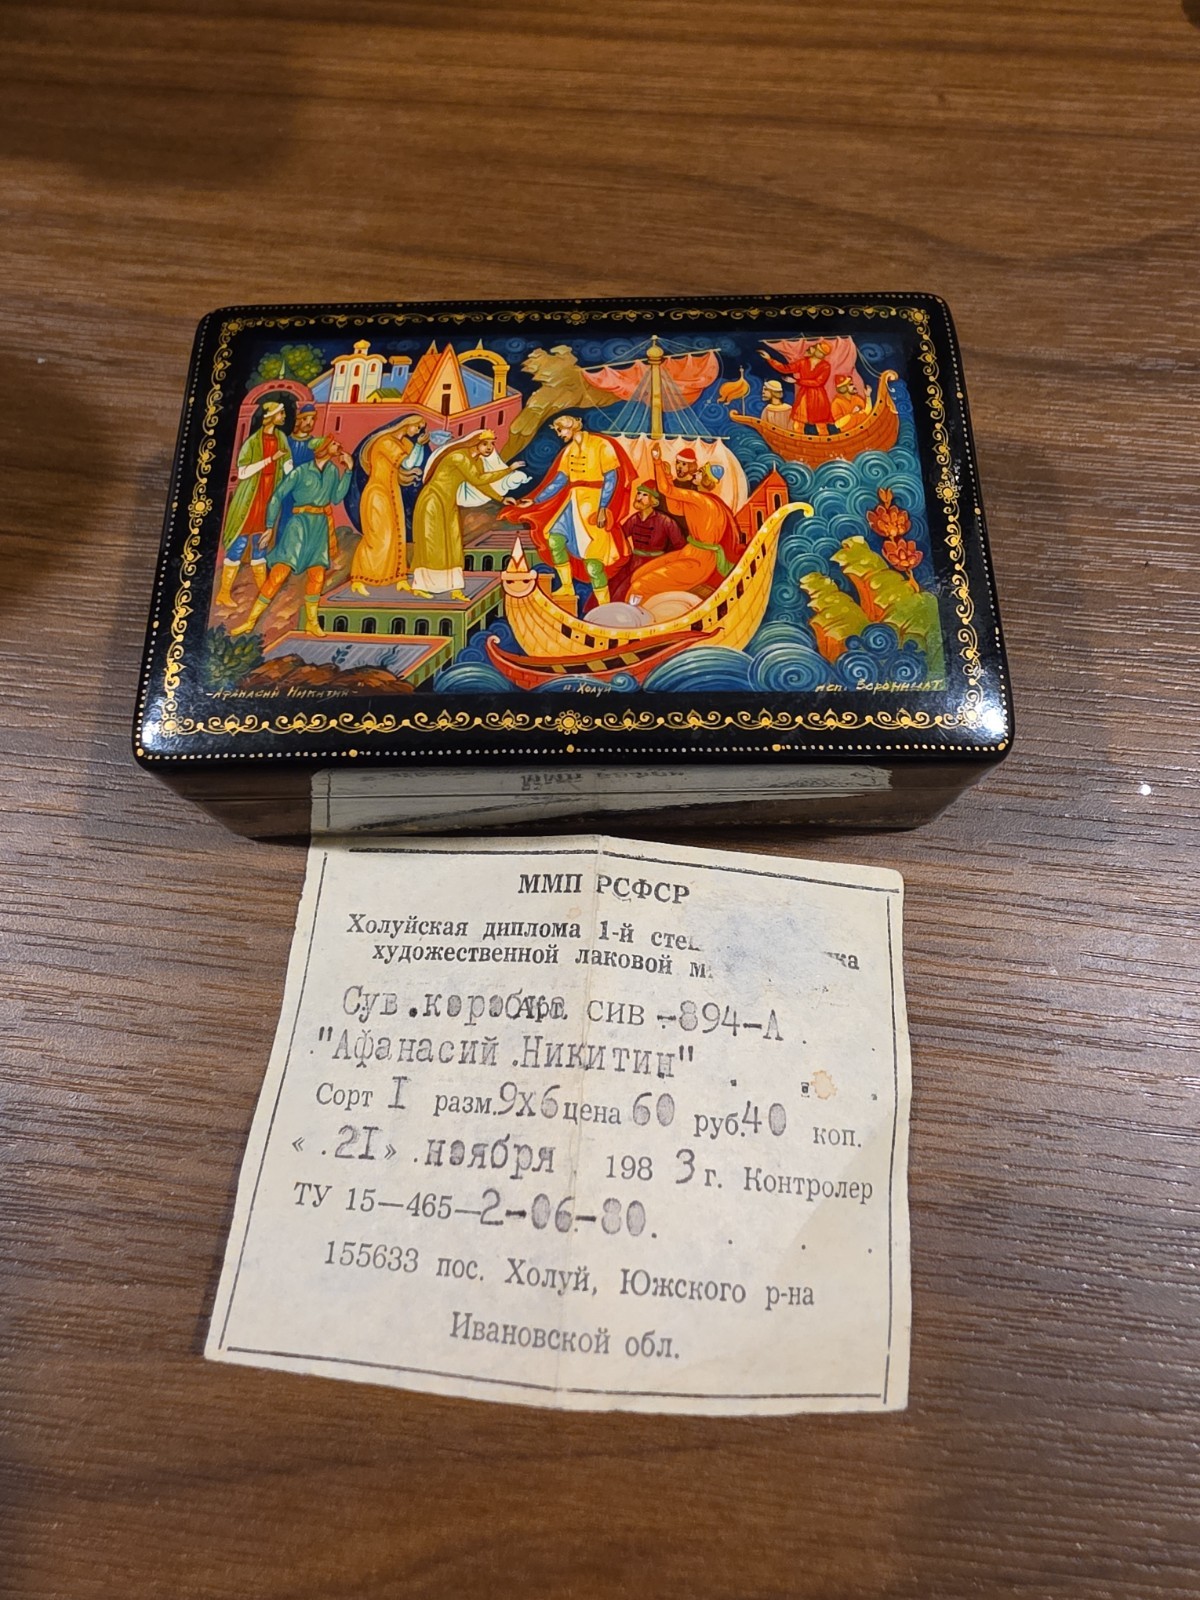 -Афанасий Никитин-
п. Холуй
исп. Воронина Т
ММП РСФСР
Холуйская диплома 1-й
художественной лаковой
Сув.коробка Арт. СИВ -894-А
"Афанасий .Никитин"
Сорт I разм. 9х6 цена 60 руб. 40 коп.
« .21» .ноября 1983 г. Контролер
ТУ 15—465—2-06-80.
155633 пос. Холуй, Южского р-на
Ивановской обл.